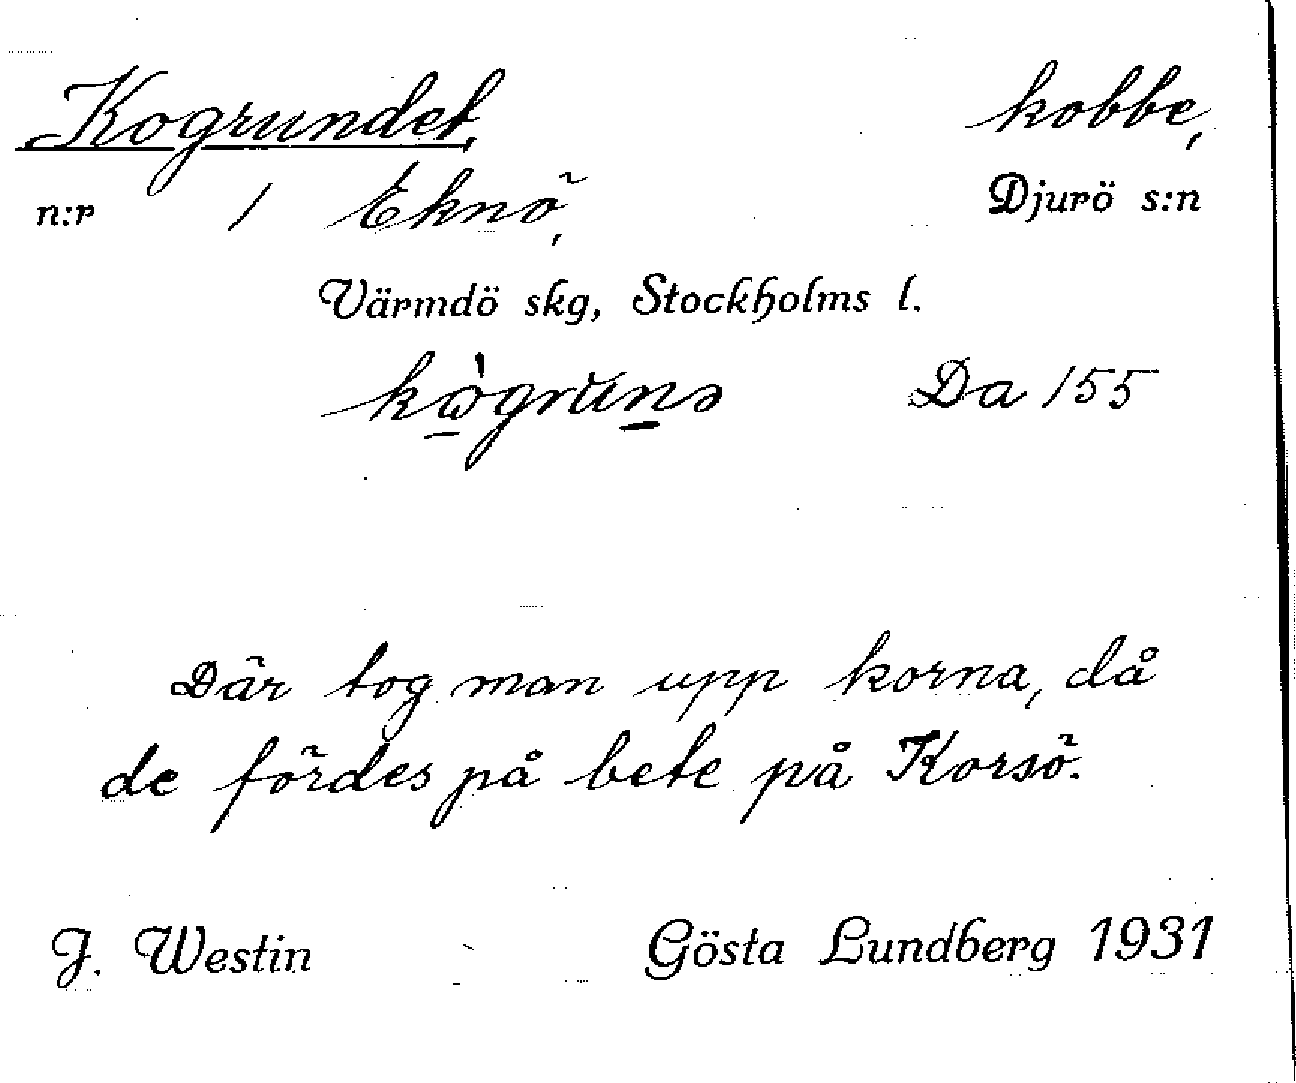 Kogrundet, kobbe,
n:r 1 Eknö, Djurö s:n
Värmdö skg, Stockholms l.
kὼgrŭnə Da 155
Där tog man upp korna, då
de fördes på bete på Korsö.
J. Westin Gösta Lundberg 1931